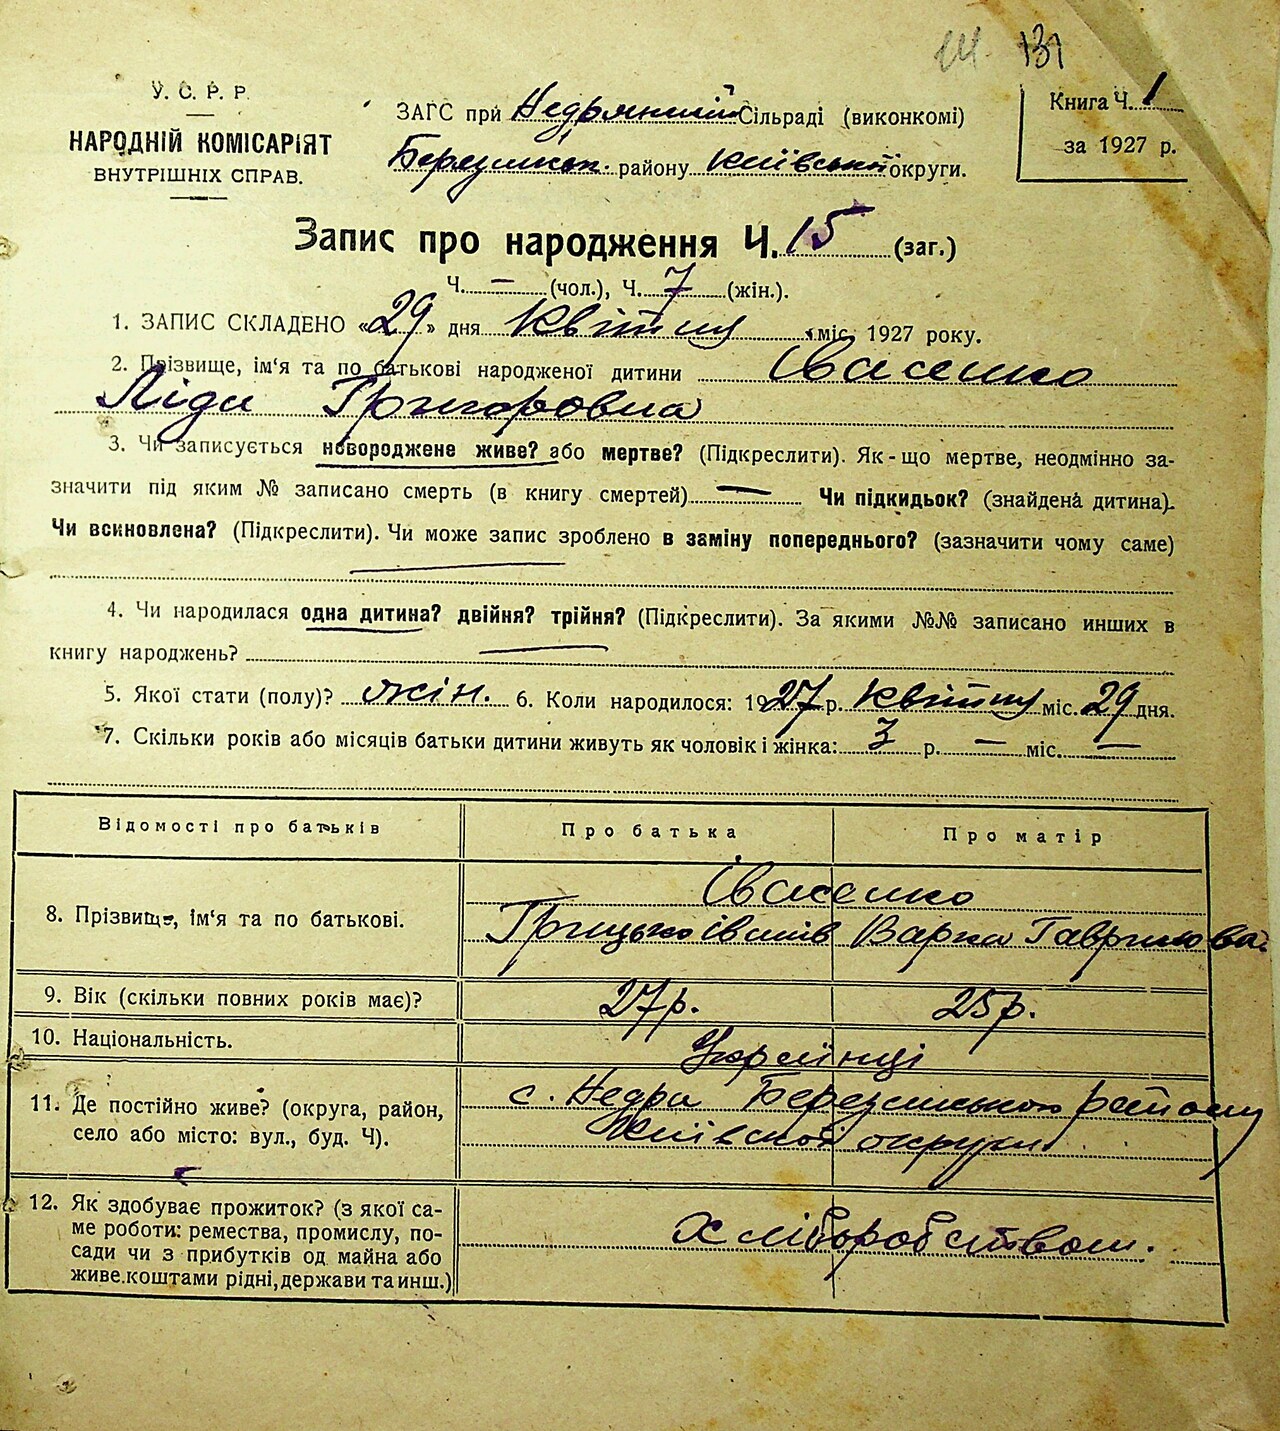 131
У. С. Р. Р.
НАРОДНІЙ КОМІСАРІЯТ
ВНУТРІШНІХ СПРАВ.
ЗАГС при Недрянській Сільраді (виконкомі)
Березанськ. району Київської округи.
Книга Ч. 1
за 1927 р.
Запис про народження Ч. 15 (заг.)
Ч. — (чол.), Ч. 7 (жін.).
1. ЗАПИС СКЛАДЕНО «29» дня квітня міс. 1927 року.
2. Прізвище, ім‘я та по батькові народженої дитини Івасенко
Ліда Григоровна
3. Чи записується новороджене живе? або мертве? (Підкреслити). Як-що мертве, неодмінно за-
значити під яким № записано смерть (в книгу смертей) — Чи підкидьок? (знайдена дитина).
Чи всиновлена? (Підкреслити). Чи може запис зроблено в заміну попереднього? (зазначити чому саме)
4. Чи народилася одна дитина? двійня? трійня? (Підкреслити). За якими №№ записано инших в
книгу народжень?
5. Якої стати (полу)? жін. 6. Коли народилося: 1927 р. квітня міс. 29 дня.
7. Скільки років або місяців батьки дитини живуть як чоловік і жінка: 3 р. — міс. —
Відомості про батьків Про батька Про матір
Івасенко
8. Прізвище, ім‘я та по батькові.
Грицько Іванів Варка Гаврилова.
9. Вік (скільки повних років має)? 27р. 25р.
10. Національність. Українці
11. Де постійно живе? (округа, район, с. Недра Березанського району
село або місто: вул., буд. Ч). Київської округи.
12. Як здобуває прожиток? (з якої са-
ме роботи: ремества, промислу, по- Хліборобством.
сади чи з прибутків од майна або
живе.коштами рідні, держави та инш.)